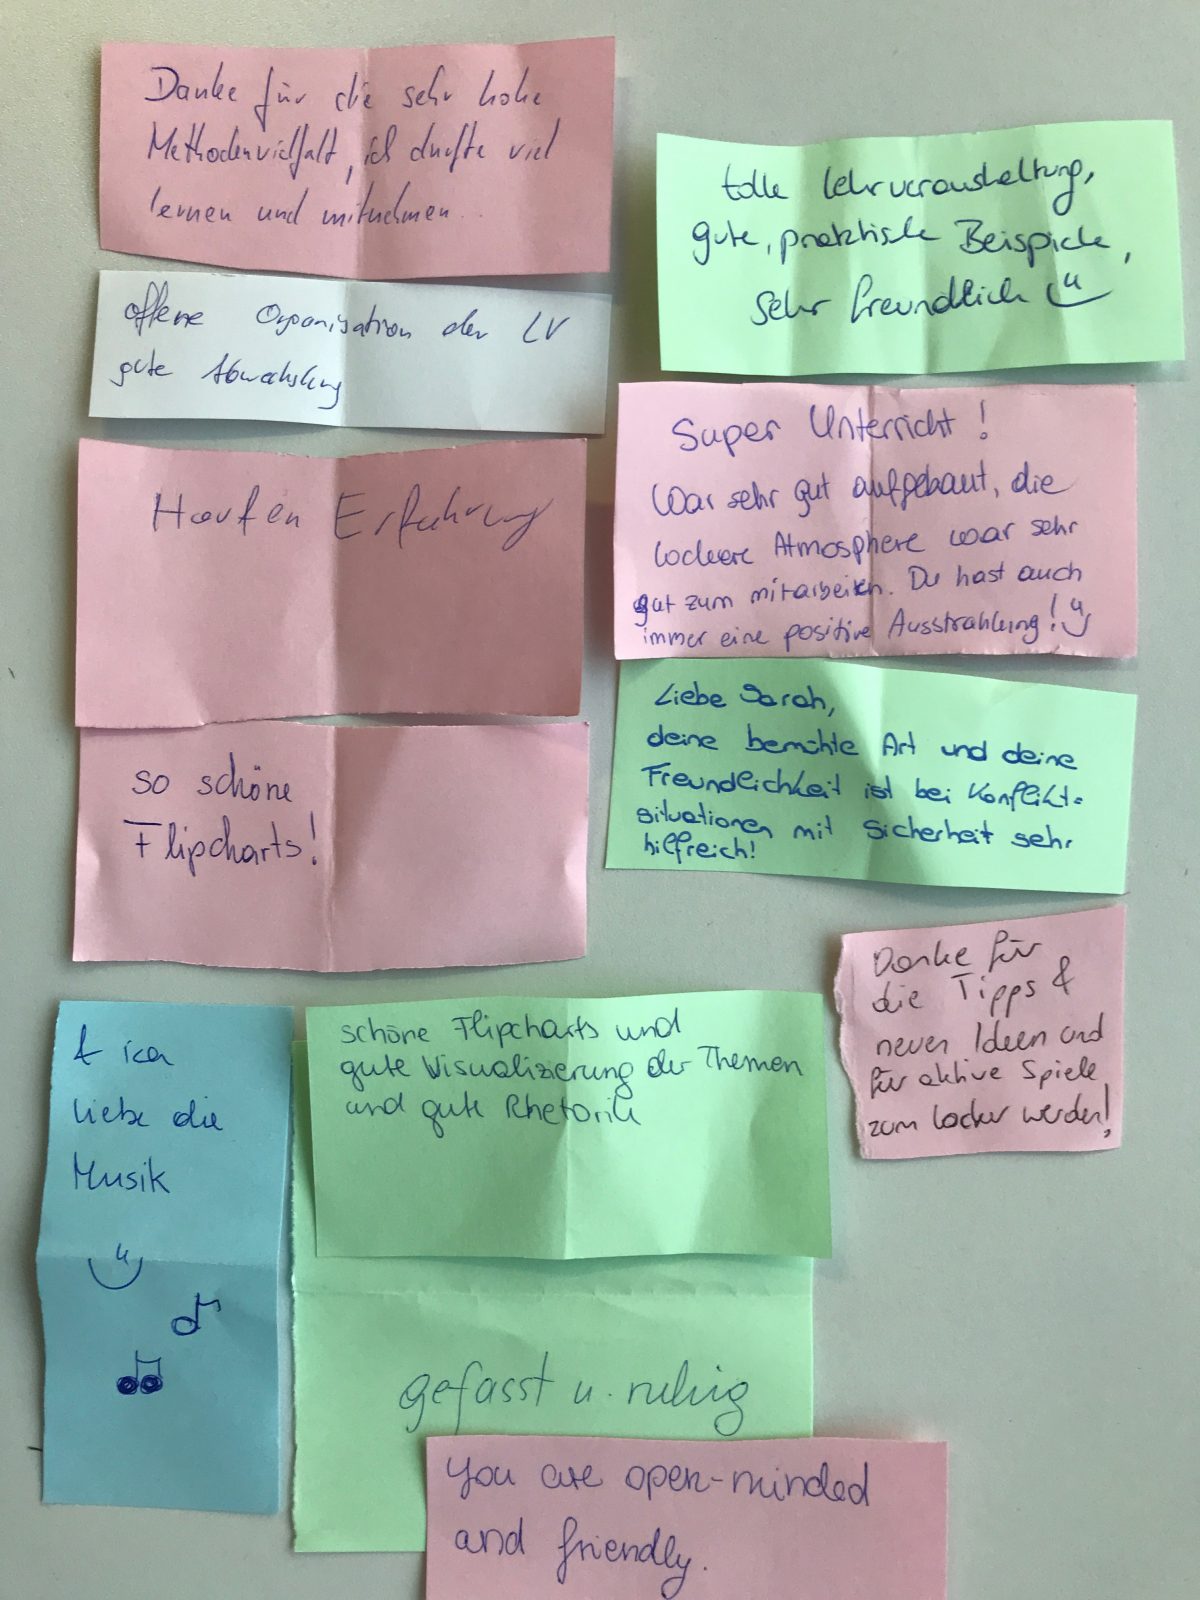 Danke für die sehr hohe
Methodenvielfalt, ich durfte viel
lernen und mitnehmen..
offene Organisation der LV
gute Abwechslung
Haufen Erfahrung
so schöne
Flipcharts!
tolle Lehrveranstaltung,
gute, praktische Beispiele,
sehr freundlich
Super Unterricht!
War sehr gut aufgebaut, die
lockere Atmosphere war sehr
gut zum mitarbeiten. Du hast auch
immer eine positive Ausstrahlung!
Liebe Sarah,
deine bemühte Art und deine
Freundlichkeit ist bei Konflikt-
situationen mit Sicherheit sehr
hilfreich!
Danke für
die Tipps &
neuen Ideen und
für aktive Spiele
zum locker werden!
& ich
liebe die
Musik
schöne Flipcharts und
gute Visualizierung der Themen
und gute Rhetorik
gefasst u. ruhig
you are open-minded
and friendly.